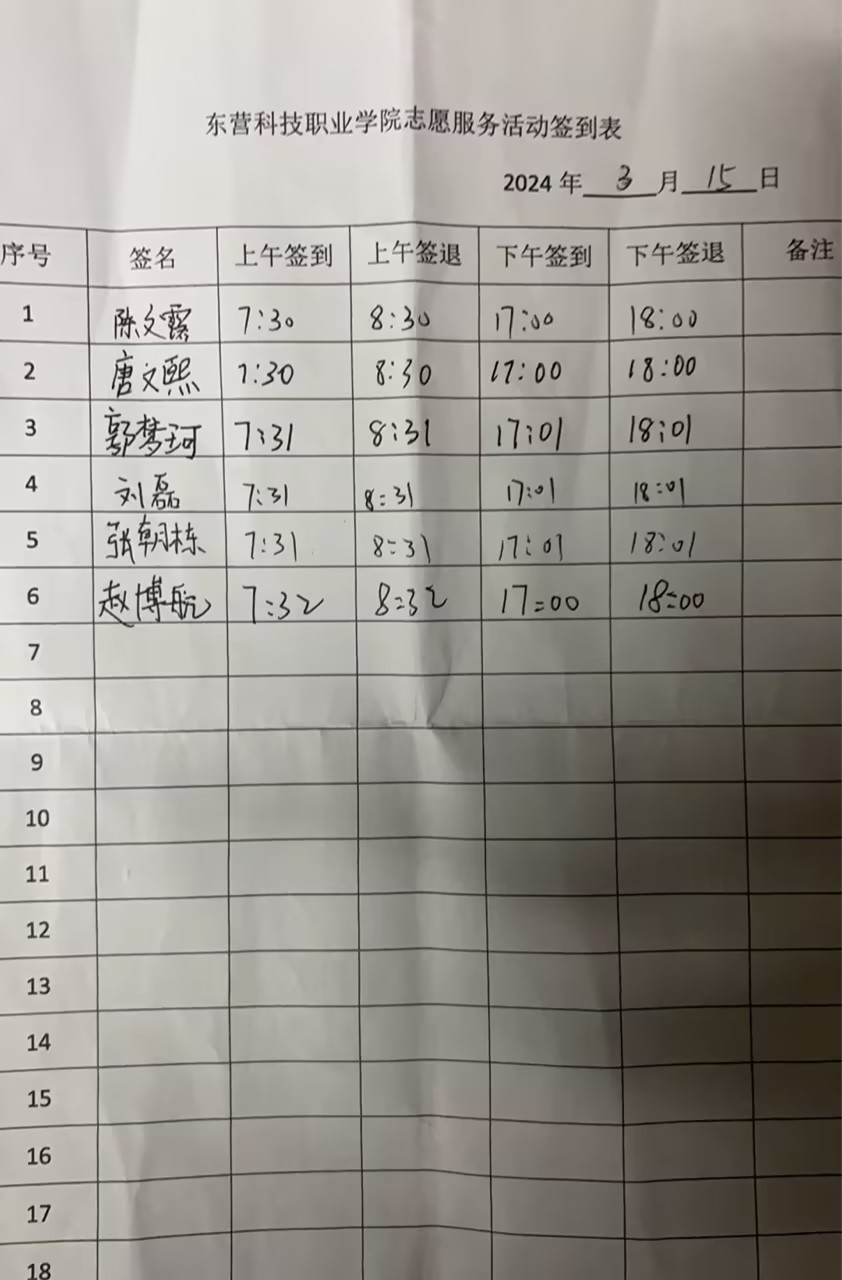 东营科技职业学院志愿服务活动签到表
2024 年 3 月 15 日
序号 签名 上午签到 上午签退 下午签到 下午签退 备注
1 陈文露 7:30 8:30 17:00 18:00
2 唐文熙 7:30 8:30 17:00 18:00
3 郭梦珂 7:31 8:31 17:01 18:01
4 刘磊 7:31 8:31 17:01 18:01
5 张朝栋 7:31 8:31 17:01 18:01
6 赵博航 7:32 8:32 17:00 18:00
7
8
9
10
11
12
13
14
15
16
17
18